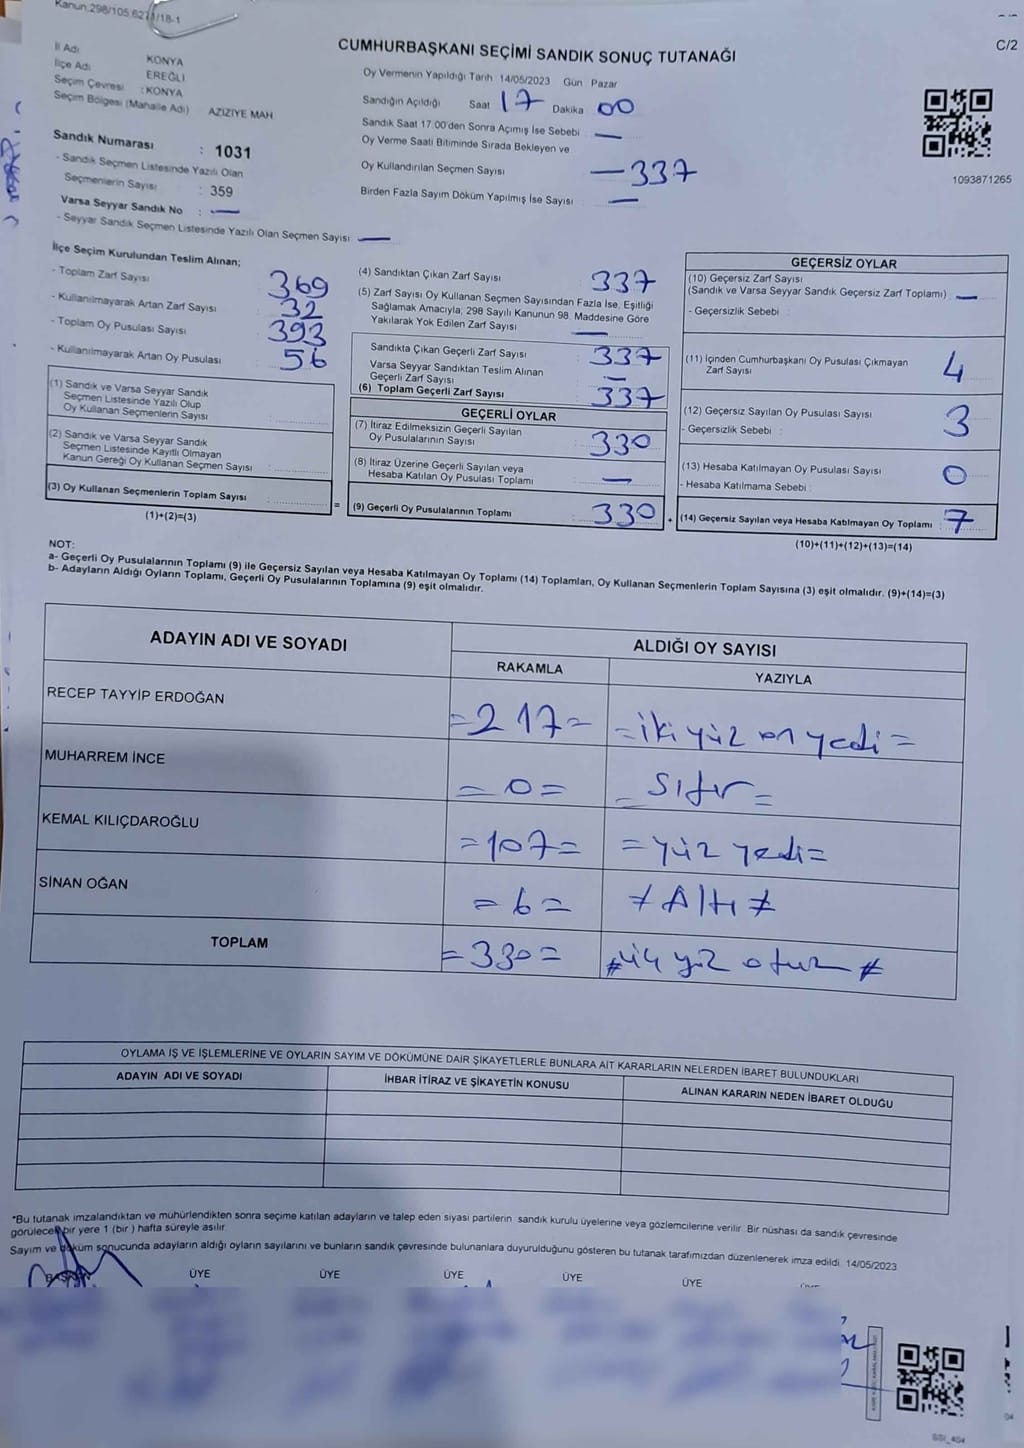 Kanun;298/105,627
/18-1
C/2
CUMHURBAŞKANI SEÇİMİ SANDIK SONUÇ TUTANAĞI
İl Adı KONYA
İlçe Adı EREĞLİ
Seçim Çevresi : KONYA
Seçim Bölgesi (Mahalle Adı) AZİZİYE MAH
Oy Vermenin Yapıldığı Tarih 14/05/2023 Gün Pazar
Sandığın Açıldığı Saat 17 Dakika 00
Sandık Saat 17:00'den Sonra Açımış İse Sebebi —
Oy Verme Saati Bitiminde Sırada Bekleyen ve
Oy Kullandırılan Seçmen Sayısı —337
Birden Fazla Sayım Döküm Yapılmış İse Sayısı —
1093871265
Sandık Numarası : 1031
- Sandık Seçmen Listesinde Yazılı Olan
Seçmenlerin Sayısı : 359
Varsa Seyyar Sandık No : —
- Seyyar Sandık Seçmen Listesinde Yazılı Olan Seçmen Sayısı —
İlçe Seçim Kurulundan Teslim Alınan;
- Toplam Zarf Sayısı 369
- Kullanılmayarak Artan Zarf Sayısı 32
- Toplam Oy Pusulası Sayısı 393
- Kullanılmayarak Artan Oy Pusulası 56
(1) Sandık ve Varsa Seyyar Sandık
Seçmen Listesinde Yazılı Olup
Oy Kullanan Seçmenlerin Sayısı :
(2) Sandık ve Varsa Seyyar Sandık
Seçmen Listesinde Kayıtlı Olmayan
Kanun Gereği Oy Kullanan Seçmen Sayısı :
(3) Oy Kullanan Seçmenlerin Toplam Sayısı :
(1)+(2)=(3)
=
(4) Sandıktan Çıkan Zarf Sayısı 337
(5) Zarf Sayısı Oy Kullanan Seçmen Sayısından Fazla İse, Eşitliği
Sağlamak Amacıyla, 298 Sayılı Kanunun 98. Maddesine Göre
Yakılarak Yok Edilen Zarf Sayısı —
Sandıkta Çıkan Geçerli Zarf Sayısı : 337
Varsa Seyyar Sandıktan Teslim Alınan
Geçerli Zarf Sayısı : —
(6) Toplam Geçerli Zarf Sayısı : 337
GEÇERLİ OYLAR
(7) İtiraz Edilmeksizin Geçerli Sayılan
Oy Pusulalarının Sayısı : 330
(8) İtiraz Üzerine Geçerli Sayılan veya
Hesaba Katılan Oy Pusulası Toplamı : —
(9) Geçerli Oy Pusulalarının Toplamı : 330
+
GEÇERSİZ OYLAR
(10) Geçersiz Zarf Sayısı
(Sandık ve Varsa Seyyar Sandık Geçersiz Zarf Toplamı) : —
- Geçersizlik Sebebi :
(11) İçinden Cumhurbaşkanı Oy Pusulası Çıkmayan
Zarf Sayısı : 4
(12) Geçersiz Sayılan Oy Pusulası Sayısı : 3
- Geçersizlik Sebebi :
(13) Hesaba Katılmayan Oy Pusulası Sayısı : 0
- Hesaba Katılmama Sebebi :
(14) Geçersiz Sayılan veya Hesaba Katılmayan Oy Toplamı : 7
(10)+(11)+(12)+(13)=(14)
NOT:
a- Geçerli Oy Pusulalarının Toplamı (9) ile Geçersiz Sayılan veya Hesaba Katılmayan Oy Toplamı (14) Toplamları, Oy Kullanan Seçmenlerin Toplam Sayısına (3) eşit olmalıdır. (9)+(14)=(3)
b- Adayların Aldığı Oyların Toplamı, Geçerli Oy Pusulalarının Toplamına (9) eşit olmalıdır.
ADAYIN ADI VE SOYADI ALDIĞI OY SAYISI
RAKAMLA YAZIYLA
RECEP TAYYİP ERDOĞAN =217= =iki yüz on yedi=
MUHARREM İNCE =0= =Sıfır=
KEMAL KILIÇDAROĞLU =107= =yüz yedi=
SİNAN OĞAN =6= ≠Altı≠
TOPLAM =330= ≠üç yüz otuz≠
OYLAMA İŞ VE İŞLEMLERİNE VE OYLARIN SAYIM VE DÖKÜMÜNE DAİR ŞİKAYETLERLE BUNLARA AİT KARARLARIN NELERDEN İBARET BULUNDUKLARI
ADAYIN ADI VE SOYADI İHBAR İTİRAZ VE ŞİKAYETİN KONUSU ALINAN KARARIN NEDEN İBARET OLDUĞU
*Bu tutanak imzalandıktan ve mühürlendikten sonra seçime katılan adayların ve talep eden siyasi partilerin sandık kurulu üyelerine veya gözlemcilerine verilir. Bir nüshası da sandık çevresinde
görülecek bir yere 1 (bir ) hafta süreyle asılır.
Sayım ve döküm sonucunda adayların aldığı oyların sayılarını ve bunların sandık çevresinde bulunanlara duyurulduğunu gösteren bu tutanak tarafımızdan düzenlenerek imza edildi. 14/05/2023
BAŞKAN ÜYE ÜYE ÜYE ÜYE ÜYE
SSI_404